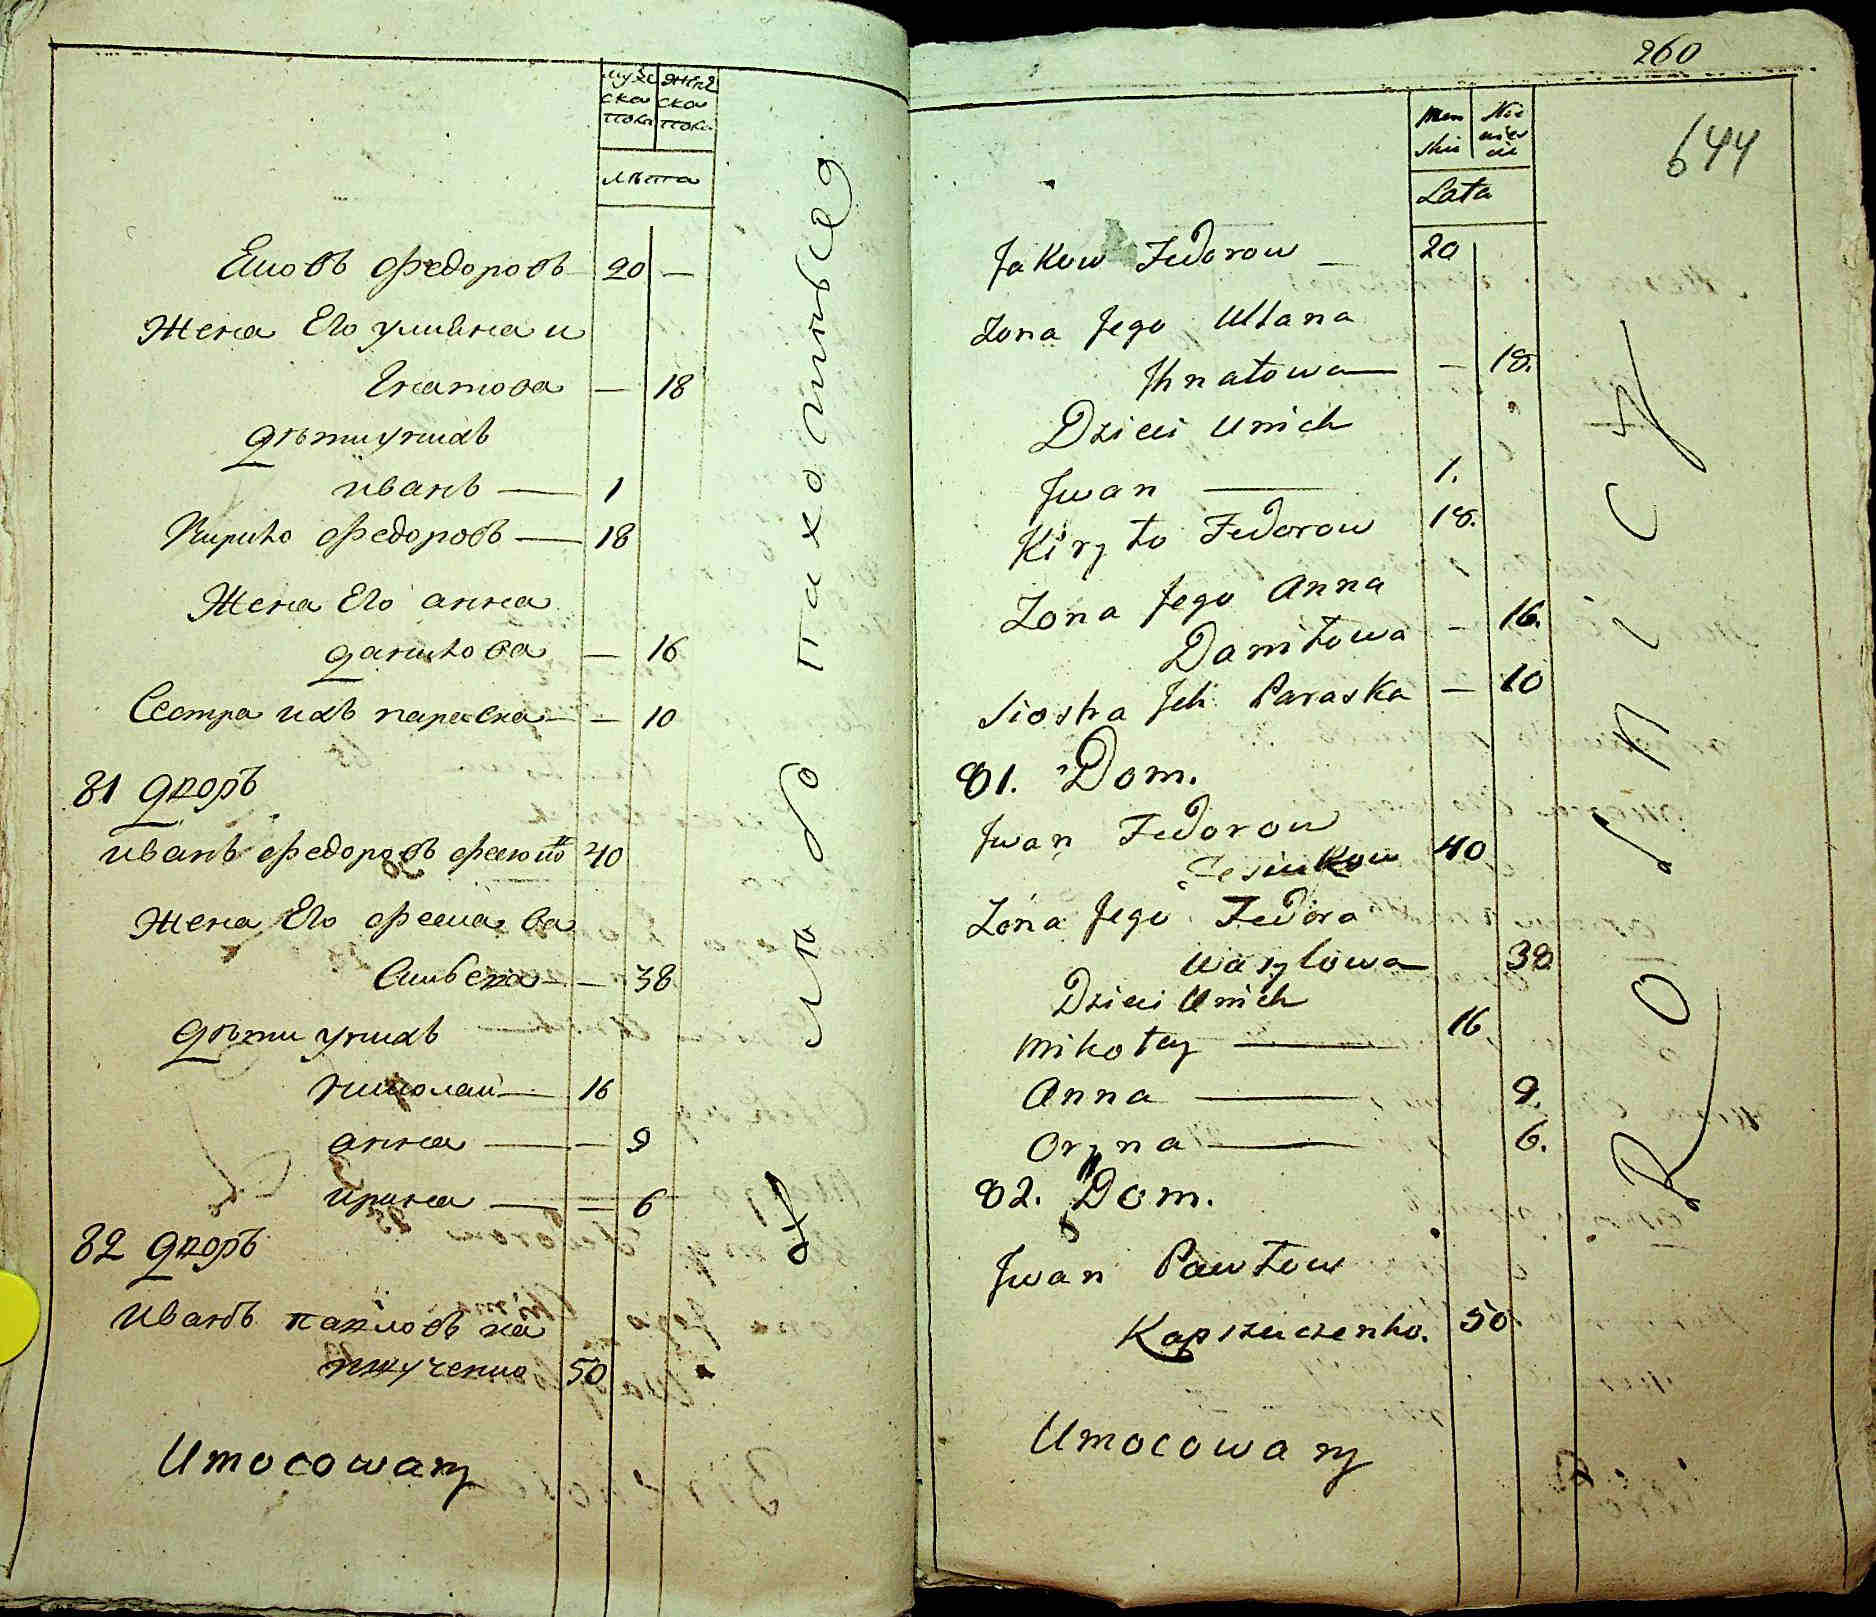 муже
ска
пола
женс
ска
пола
лѣта
Яковъ Федоровъ 20 —
Жена Его улияна и
Гнатова — 18
дѣти унихъ
иванъ — 1
Кирило Федоровъ — 18
Жена Его анна
данилова — 16
Сестра ихъ параска — — 10
81 дворъ
иванъ федоровъ 40
Жена Его
— 38
дѣти унихъ
николаи — 16
анна — — 9
ирина — — 6
82 дворъ
иванъ павловъ ка
пшученко 50
Umocowany
хлѣбопахотные
260
644
Męn
skie
Nie
wies
cie
Lata
Jakow Fedorow — 20
Żona Jego Ulłana
Ihnatowa — — 18.
Dzieci unich
Jwan — 1.
Kiryło Fedorow 18.
Żona Jego Anna
Daniłowa — 16.
Siostra Jch Paraska — 10
81. Dom.
Jwan Fedorow
40
Żona Jego Fedora
Wasylowa 38
Dzieci Unich
Mikołay — 16
Anna — 9.
Oryna — 6.
82. Dom.
Jwan Pawłow
Kapszuczenko. 50
Umocowany
Rolnicy